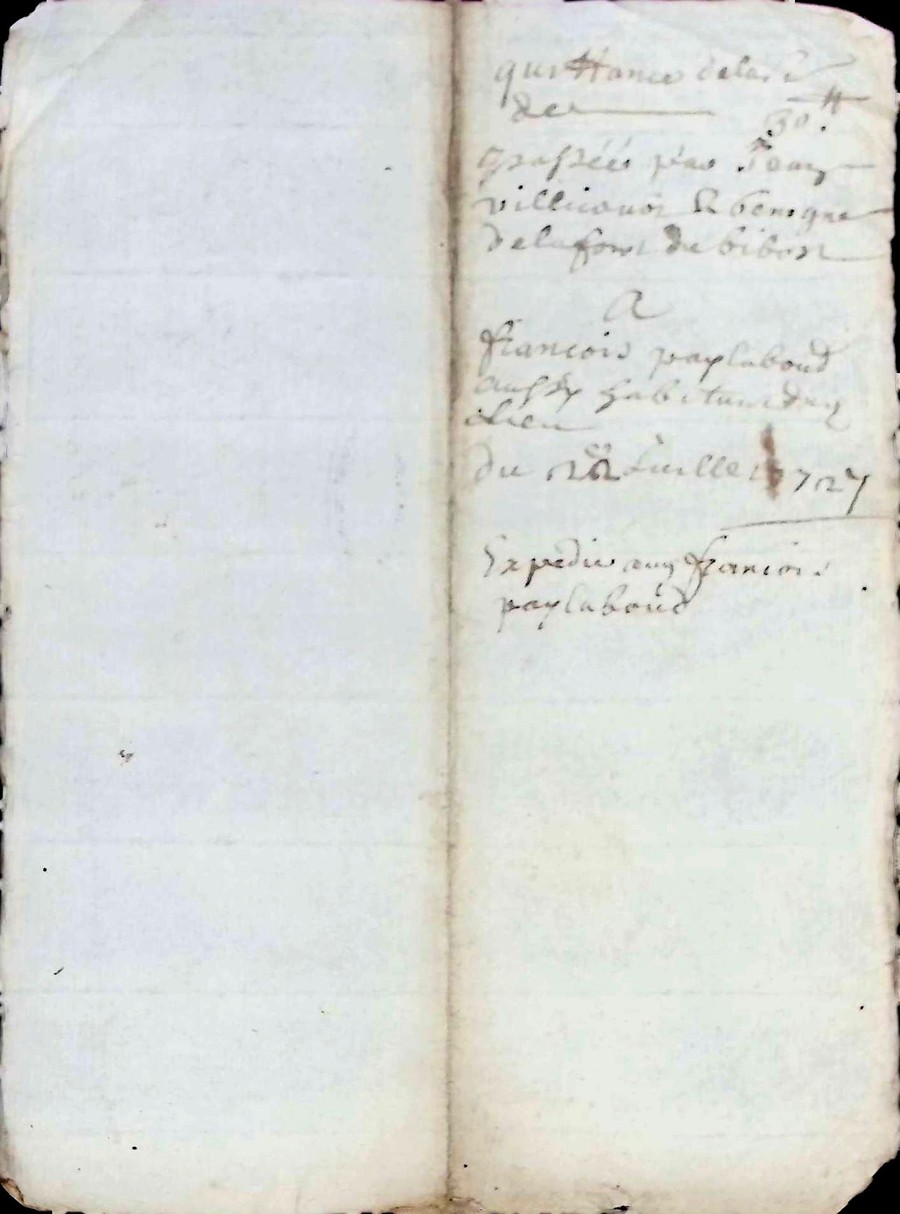 quittance dela s̃e
de 30.tt
passéé par Jean
villieauoi & benigne
delafont de bibost
A
francois paylaboud
aussy habitant duy
lieu
du 22e Juille 1727
Expedie auy francois
paylaboud